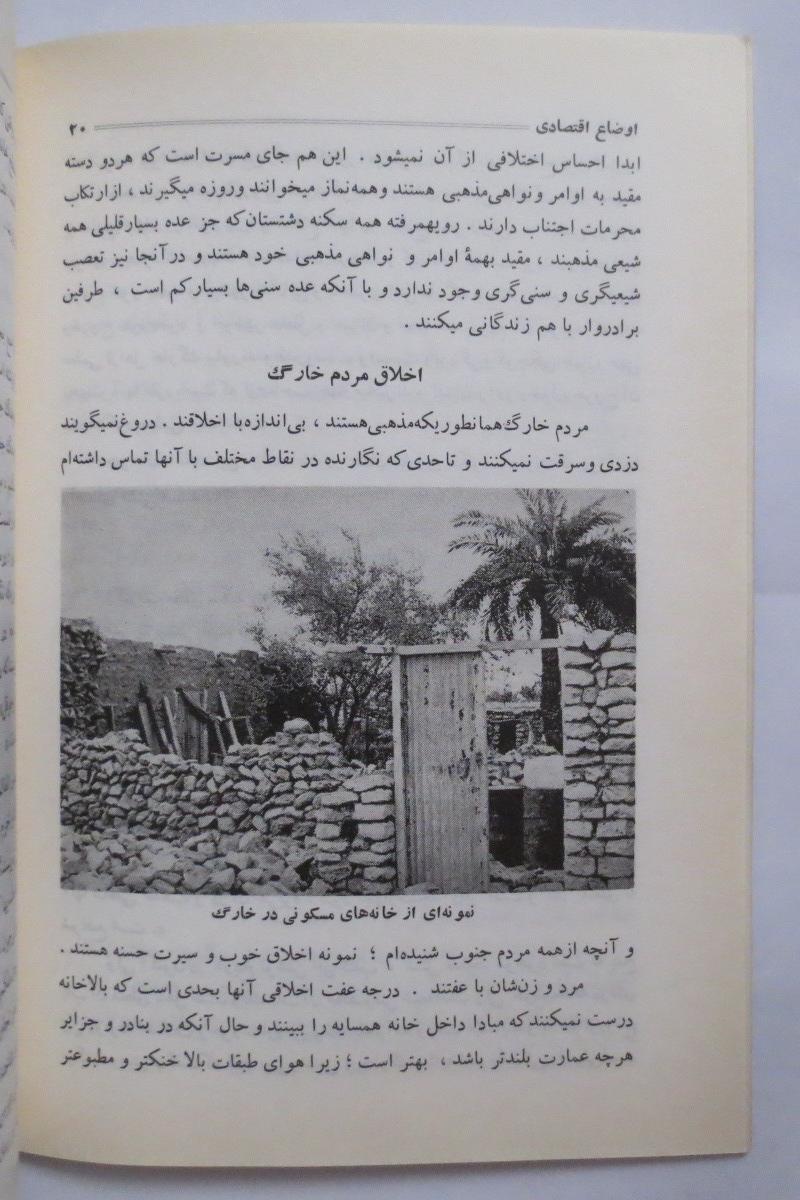 اوضاع اقتصادی ۲۰
ابدا احساس اختلافی از آن نمیشود . این هم جای مسرت است که هردو دسته
مقید به اوامر و نواهی مذهبی هستند و همه نماز میخوانند و روزه میگیرند ، از ارتکاب
محرمات اجتناب دارند . رویهمرفته همه سکنه دشتستان که جز عده بسیار قلیلی همه
شیعی مذهبند ، مقید بهمهٔ اوامر و نواهی مذهبی خود هستند و در آنجا نیز تعصب
شیعیگری و سنی‌گری وجود ندارد و با آنکه عده سنی‌ها بسیار کم است ، طرفین
برادروار با هم زندگانی میکنند .
اخلاق مردم خارگ
مردم خارگ همانطوریکه مذهبی هستند ، بی‌اندازه با اخلاقند . دروغ نمیگویند
دزدی و سرقت نمیکنند و تاحدی که نگارنده در نقاط مختلف با آنها تماس داشته‌ام
نمونه‌ای از خانه‌های مسکونی در خارگ
و آنچه از همه مردم جنوب شنیده‌ام ؛ نمونه اخلاق خوب و سیرت حسنه هستند .
مرد و زن‌شان با عفتند . درجه عفت اخلاقی آنها بحدی است که بالاخانه
درست نمیکنند که مبادا داخل خانه همسایه را ببینند و حال آنکه در بنادر و جزایر
هرچه عمارت بلندتر باشد ، بهتر است ؛ زیرا هوای طبقات بالا خنکتر و مطبوعتر